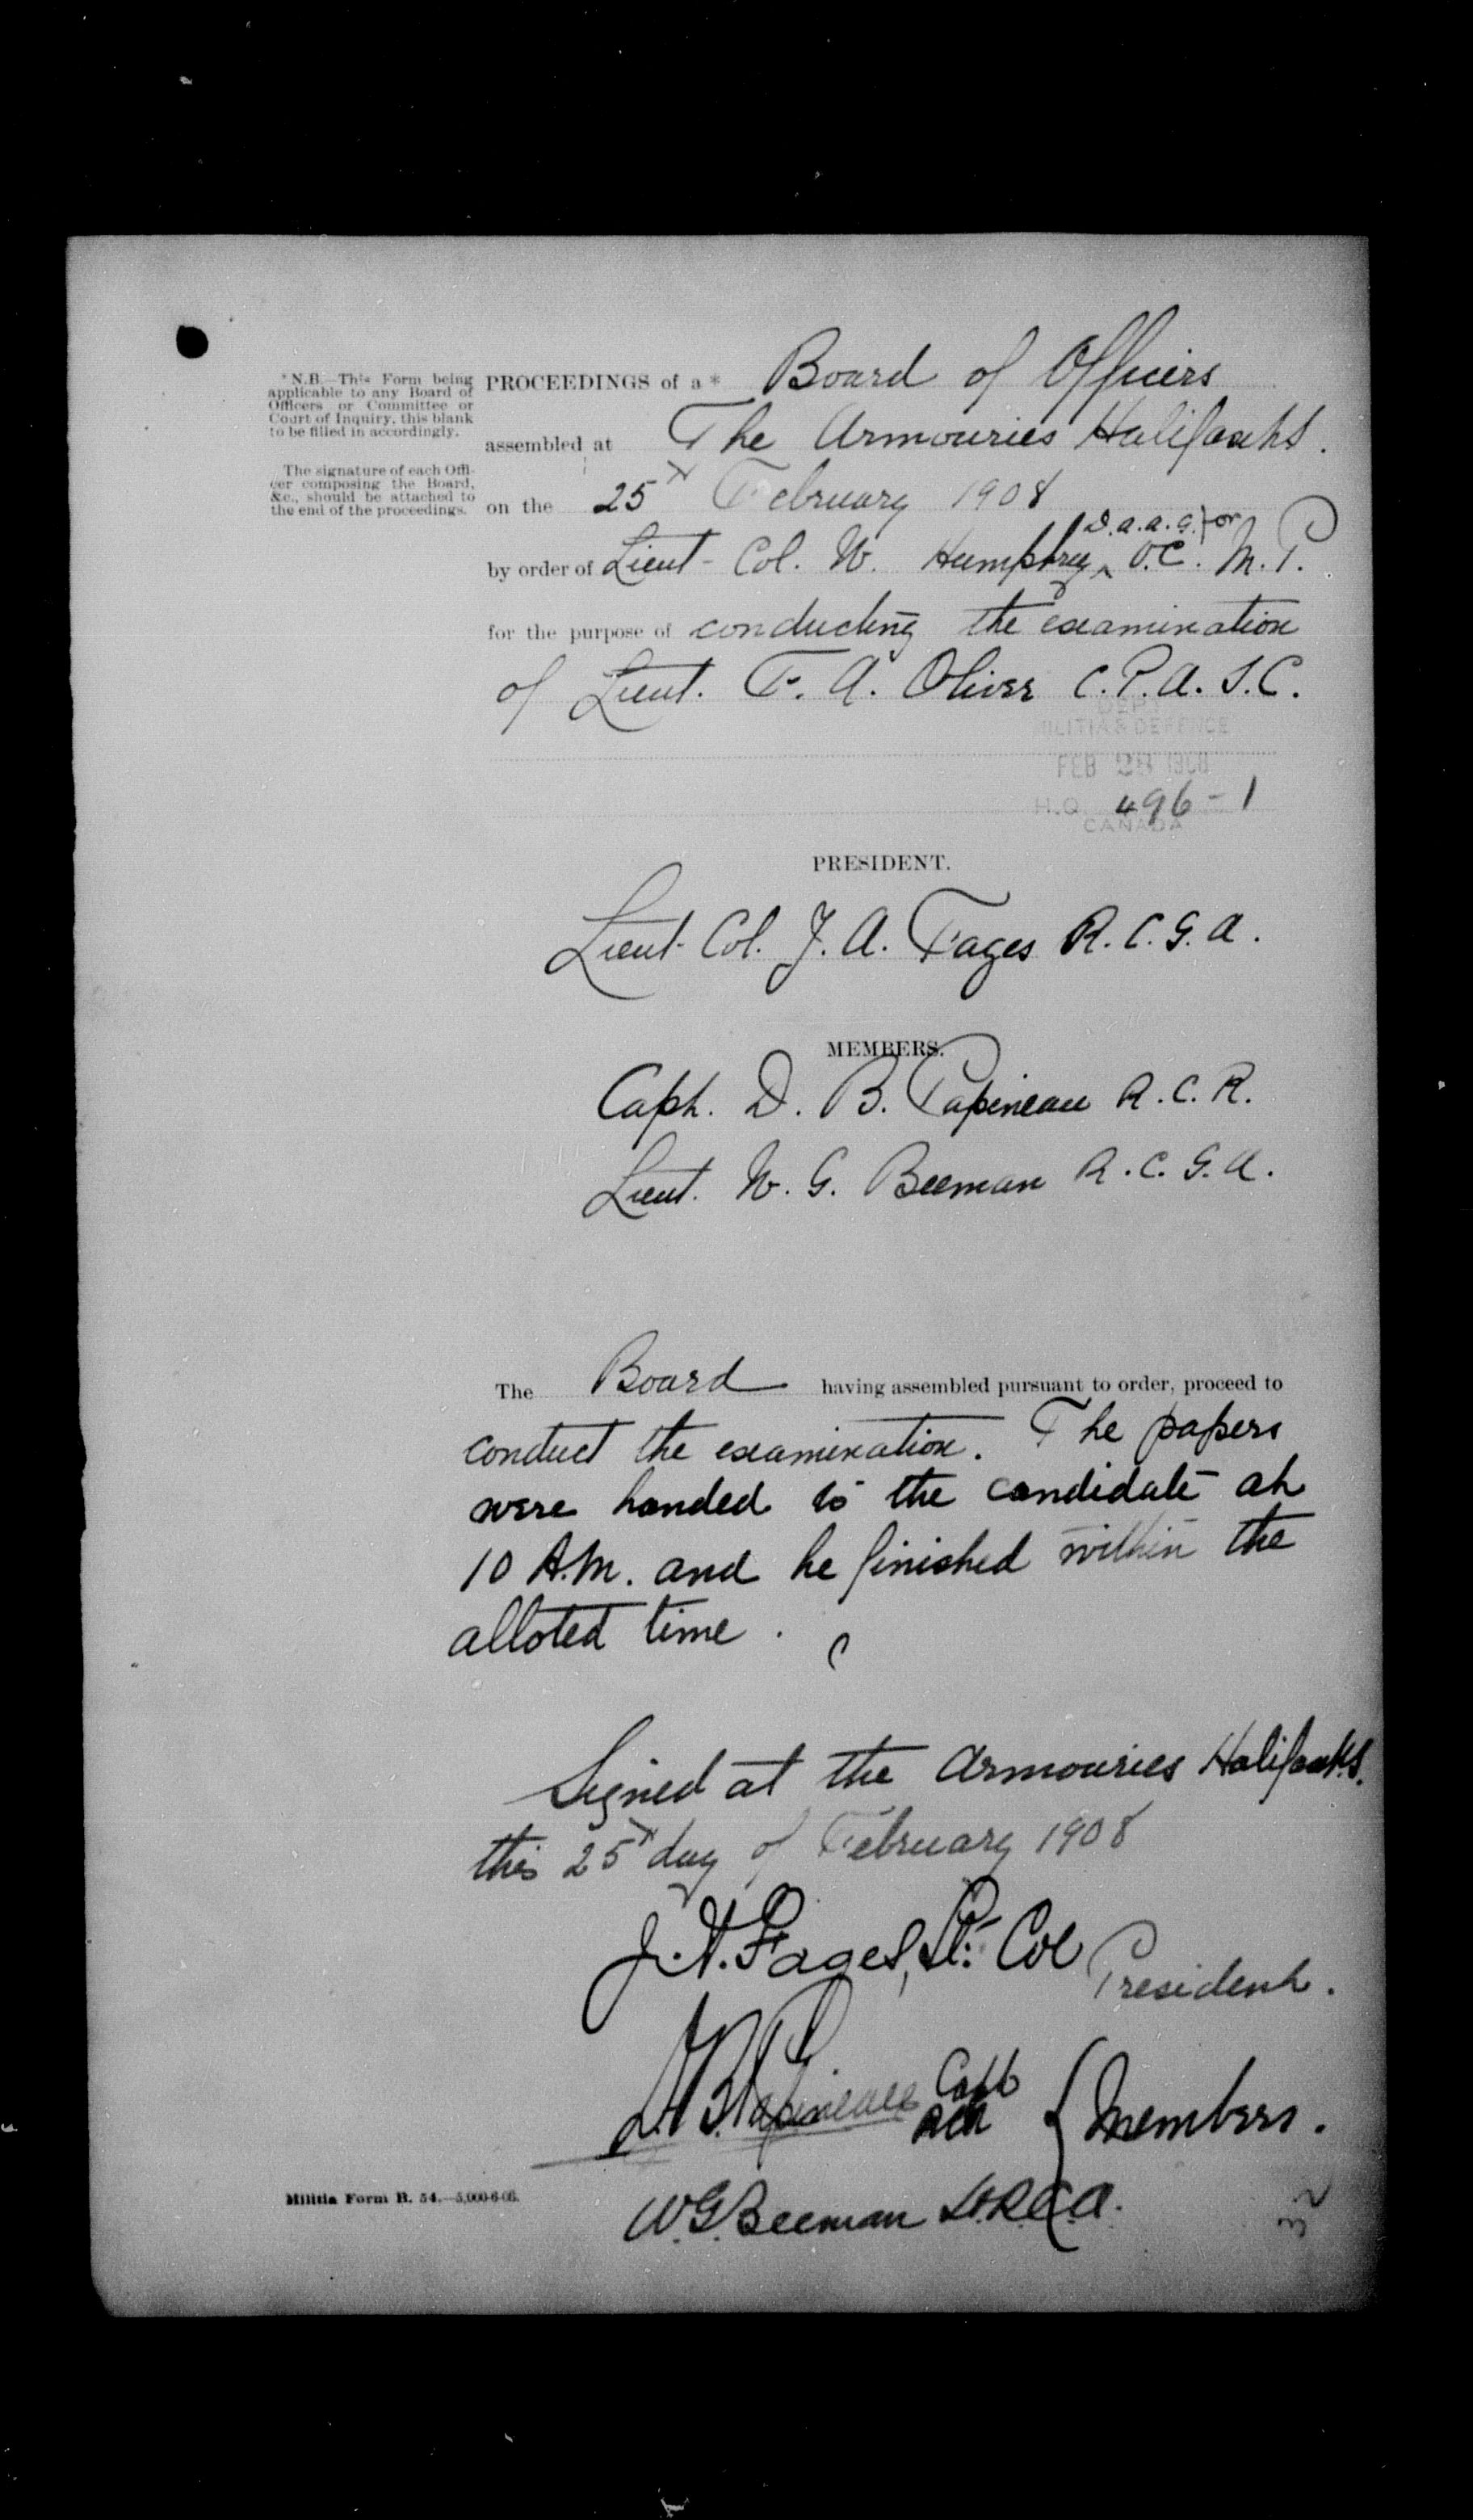 *N.B.—This Form being
applicable to any Board of
Officers or Committee or
Court of Inquiry, this blank
to be filled in accordingly.
The signature of each Offi-
cer composing the Board,
&c., should be attached to
the end of the proceedings.
PROCEEDINGS of a * Board of Officers
assembled at The Armouries Halifax N.S.
on the 25th February 1908
D.A.A.G. for
by order of Lieut-Col. W. Humphrey ^ O.C. M.P.
for the purpose of conducting the examination
of Lieut. F. A. Oliver C.P.A.S.C.
DEPT
MILITIA & DEFENCE
FEB 28 1908
H.Q. 496-1
CANADA
PRESIDENT.
Lieut-Col. J. A. Fages R.C.G.A.
MEMBERS.
Capt. D. B. Papineau R.C.R.
Lieut. W. G. Beeman R.C.G.A.
The Board having assembled pursuant to order, proceed to
conduct the examination. The papers
were handed to the candidate at
10 A.M. and he finished within the
alloted time.
Signed at the Armouries Halifax N.S.
this 25th day of February 1908
J. A. Fages, Lt. Col President.
D B Papineau Capt
RCR { Members.
W.G. Beeman Lt. R.C.A.
Militia Form B. 54.—5,000-6-06.
32